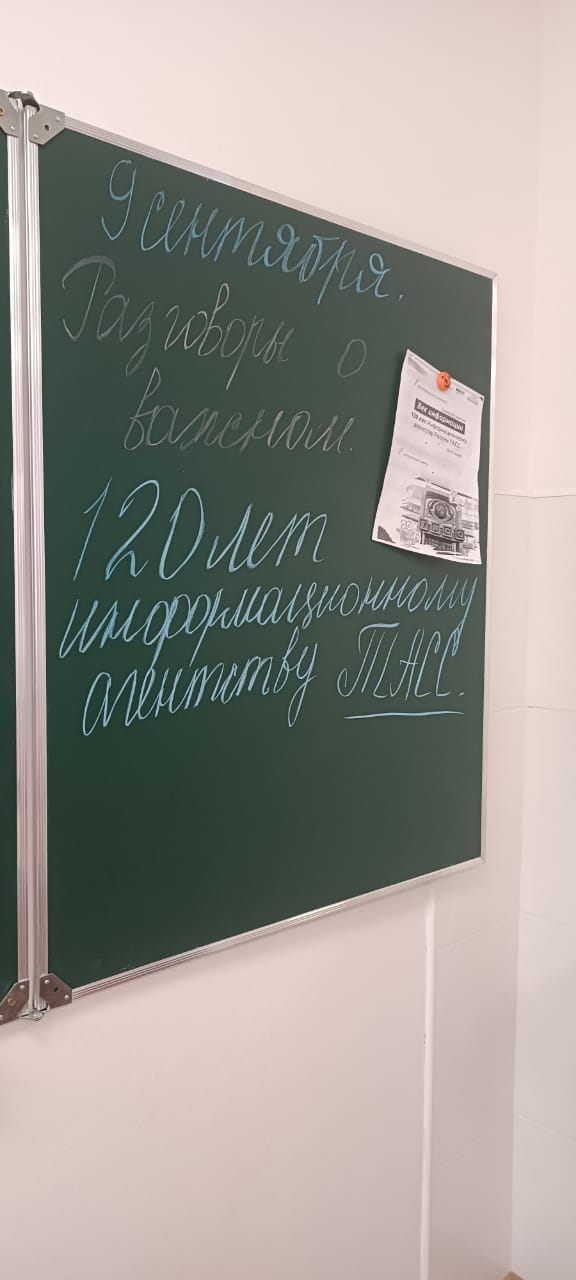 9 сентября.
Разговоры о
важном.
Век информации
120 лет Информационному
агентству России ТАСС
120 лет
информационному
агентству ТАСС.